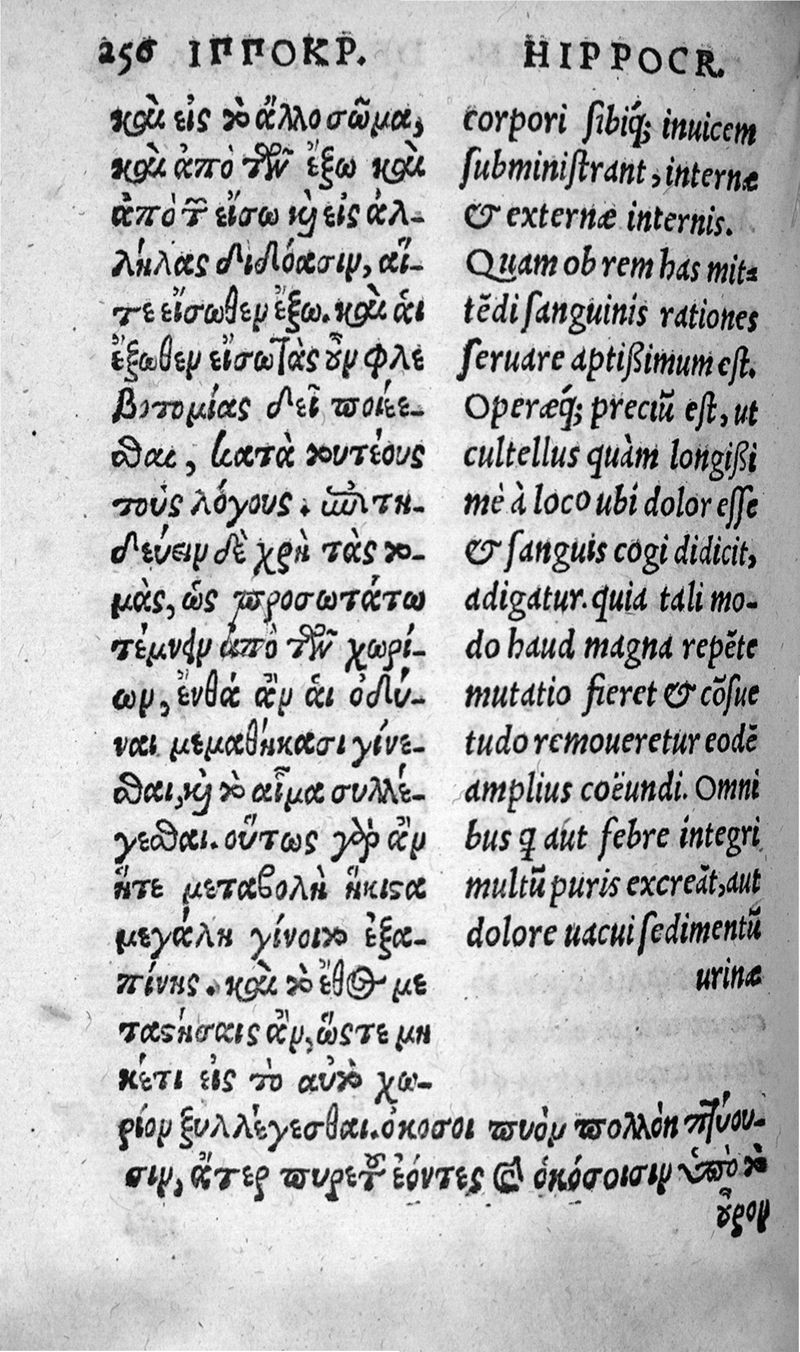 256 ΙΠΠΟΚΡ.
καὶ εἰς τὸ ἄλλο σῶμα,
καὶ ἀπὸ τῶν ἔξω καὶ
ἀπὸ τῶν εἴσω καὶ εἰς ἀλ-
λήλας διδόασιν, αἵ-
τε εἴσωθεν ἔξω. καὶ ἁι
ἔξωθεν εἴσω τὰς οὖν φλε
βοτομίας δεῖ ποιέε-
σθαι, κατὰ τουτέους
τοὺς λόγους. ἐπιτη-
δεύειν δὲ χρὴ τὰς το-
μὰς, ὡς προσωτάτω
τέμνειν ἀπὸ τῶν χωρί-
ων, ἔνθά ἂν ἁι ὀδύ-
ναι μεμαθήκασι γίνε-
σθαι, καὶ τὸ αἷμα συλλέ-
γεσθαι. οὕτως γὰρ ἂν
ἥτε μεταβολὴ ἥκιστα
μεγάλη γίνοιτο ἐξα-
πίνης. καὶ τὸ ἔθος με
ταστήσαις ἂν, ὥστε μη
κέτι εἰς το αὐτὸ χω-
ρίον ξυλλέγεσθαι. ὁκόσοι πυὸν πολλὸν πτύου-
σιν, ἄτερ πυρετοῦ ἐόντες καὶ ὁκόσοισιν ὑπὸ τὸ
οὖρον
HIPPOCR.
corpori sibiq; inuicem
subministrant, internæ
& externæ internis.
Quam ob rem has mit-
tēdi sanguinis rationes
seruare aptißimum est.
Operæq́; preciū est, ut
cultellus quàm longißi
mè à loco ubi dolor esse
& sanguis cogi didicit,
adigatur. quia tali mo-
do haud magna repēte
mutatio fieret & cōsue
tudo remoueretur eodē
amplius coëundi. Omni
bus q aut febre integri
multū puris excreāt, aut
dolore uacui sedimentū
urinæ